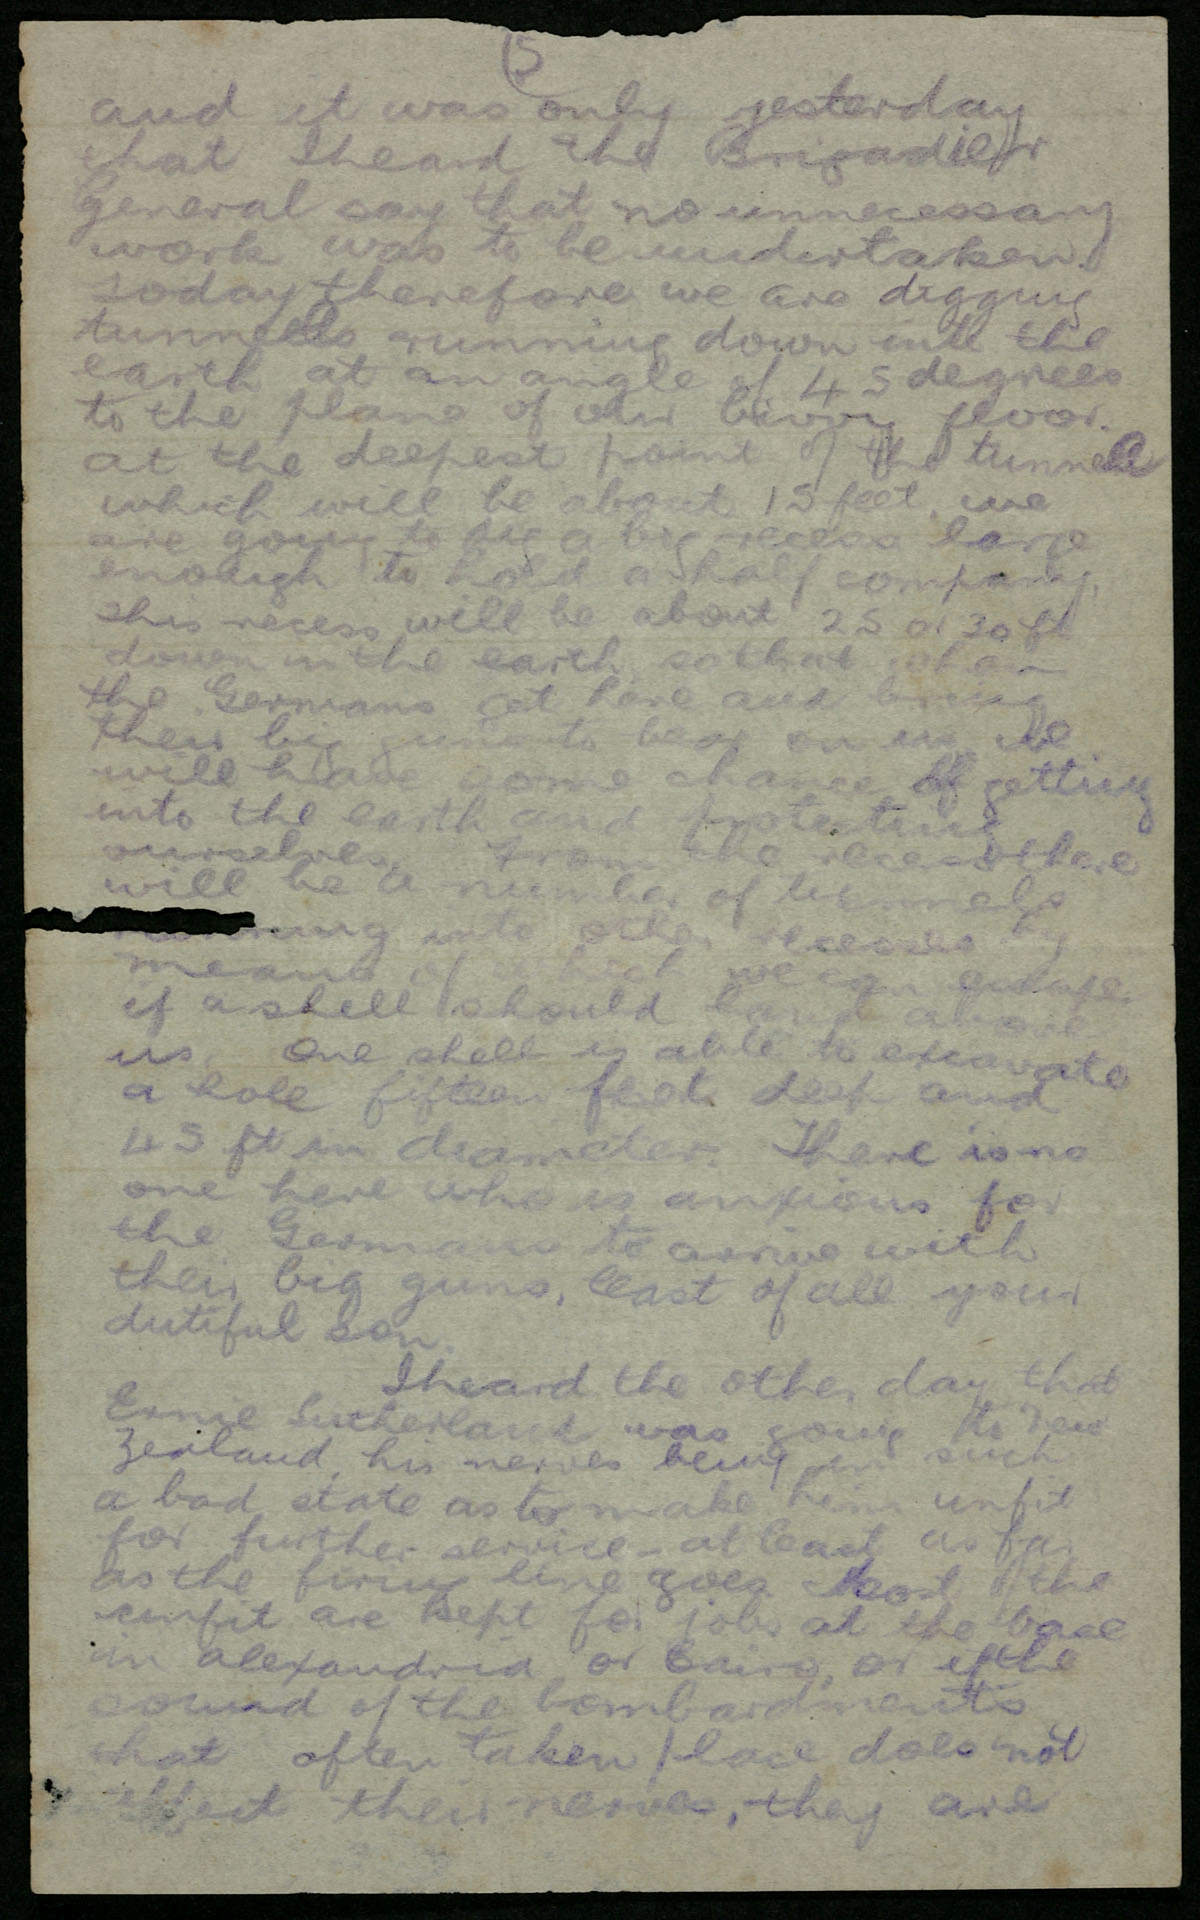 (5
and it was only yesterday
that I heard the Brigadier
General say that no unnecessary
work was to be undertaken.
Today therefore we are digging
tunnells running down into the
earth at an angle of 45 degrees
to the plane of our bivvy floor.
at the deepest point of the tunnell
which will be about 15 feet, we
are going to dig a big recess large
enough to hold a half company,
this recess will be about 25 or 30 ft
down in the earth, so that when
the Germans get here and bring
their big guns to bear on us, we
will have some chance of getting
into the earth and protecting
ourselves. From the recess there
will be a number of tunnels
running into other recesses by
means of which we can escape
if a shell should land above
us. One shell is able to excavate
a hole fifteen feet deep and
45 ft in diameter. There is no
one here who is anxious for
the Germans to arrive with
their big guns, least of all your
dutiful son.
I heard the other day that
Ernie Sutherland was going to New
Zealand, his nerves being in such
a bad state as to make him unfit
for further service - at least as far
as the firing line goes. Most of the
unfit are kept for jobs at the base
in alexandria or Cairo, or if the
sound of the bombardments
that often taken place does not
effect their nerves, they are